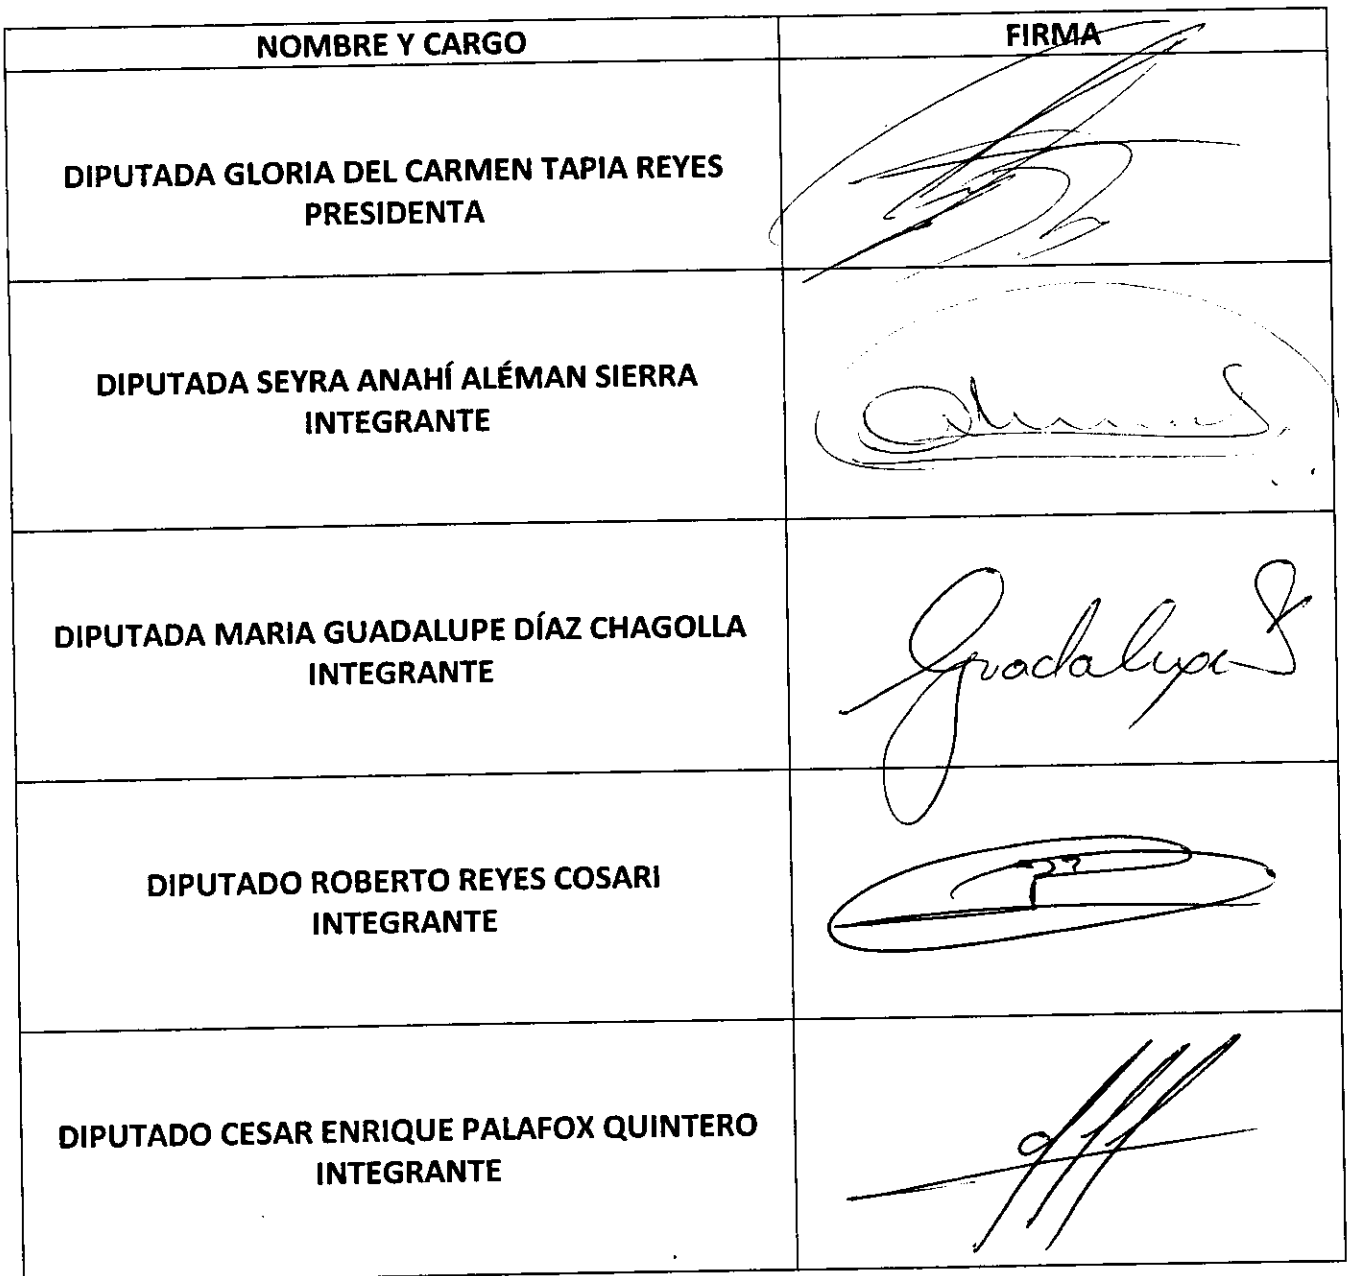 NOMBRE Y CARGO
FIRMA
DIPUTADA GLORIA DEL CARMEN TAPIA REYES
PRESIDENTA
DIPUTADA SEYRA ANAHÍ ALÉMAN SIERRA
INTEGRANTE
DIPUTADA MARIA GUADALUPE DÍAZ CHAGOLLA
INTEGRANTE
Guadalupe
DIPUTADO ROBERTO REYES COSARI
INTEGRANTE
DIPUTADO CESAR ENRIQUE PALAFOX QUINTERO
INTEGRANTE